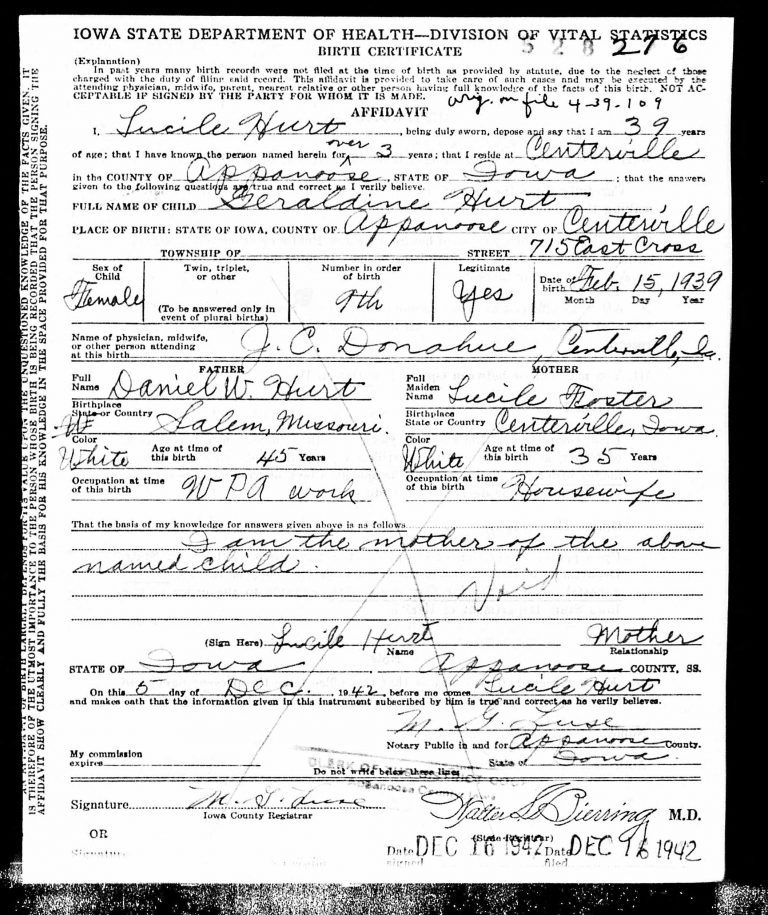 IOWA STATE DEPARTMENT OF HEALTH—DIVISION OF VITAL STATISTICS
BIRTH CERTIFICATE
528 276
(Explanation)
In past years many birth records were not filed at the time of birth as provided by statute, due to the neglect of those
charged with the duty of filing said record. This affidavit is provided to take care of such cases and may be executed by the
attending physician, midwife, parent, nearest relative or other person having full knowledge of the facts of this birth. NOT AC-
CEPTABLE IF SIGNED BY THE PARTY FOR WHOM IT IS MADE.
orig. on file 4-39-109
AFFIDAVIT
I, Lucile Hurt, being duly sworn, depose and say that I am 39 years
of age; that I have known the person named herein for over 3 years; that I reside at Centerville
in the COUNTY OF Appanoose, STATE OF Iowa; that the answers
given to the following questions are true and correct as I verily believe.
FULL NAME OF CHILD Geraldine Hurt
PLACE OF BIRTH: STATE OF IOWA, COUNTY OF Appanoose CITY OF Centerville
TOWNSHIP OF STREET 715 East Cross
Sex of Child Female
Twin, triplet, or other
(To be answered only in event of plural births)
Number in order of birth 9th
Legitimate Yes
Date of birth Feb. 15, 1939
Month Day Year
Name of physician, midwife,
or other person attending
at this birth J. C. Donahue, Centerville, Ia.
FATHER
Full Name Daniel W. Hurt
Birthplace
State or Country Salem, Missouri.
Color White Age at time of this birth 45 Years
Occupation at time of this birth WPA work
MOTHER
Full Maiden Name Lucile Foster
Birthplace
State or Country Centerville, Iowa.
Color White Age at time of this birth 35 Years
Occupation at time of this birth Housewife
That the basis of my knowledge for answers given above is as follows
I am the mother of the above
named child.
Void
(Sign Here) Lucile Hurt Mother
Name Relationship
STATE OF Iowa Appanoose COUNTY, SS.
On this 5 day of Dec. 1942, before me comes Lucile Hurt
and makes oath that the information given in this instrument subscribed by him is true and correct as he verily believes.
M. G. Luse
Notary Public in and for Appanoose County.
My commission
expires State of Iowa.
Do not write below these lines
Signature M. G. Luse Walter L. Bierring M.D.
Iowa County Registrar (State Registrar)
OR
Signature
Date signed DEC 16 1942 Date filed DEC 16 1942
IS THEREFORE OF THE UTMOST IMPORTANCE TO THE PERSON WHOSE BIRTH IS BEING RECORDED THAT THE PERSON SIGNING THE
AFFIDAVIT SHOW CLEARLY AND FULLY THE BASIS FOR HIS KNOWLEDGE IN THE SPACE PROVIDED FOR THAT PURPOSE.